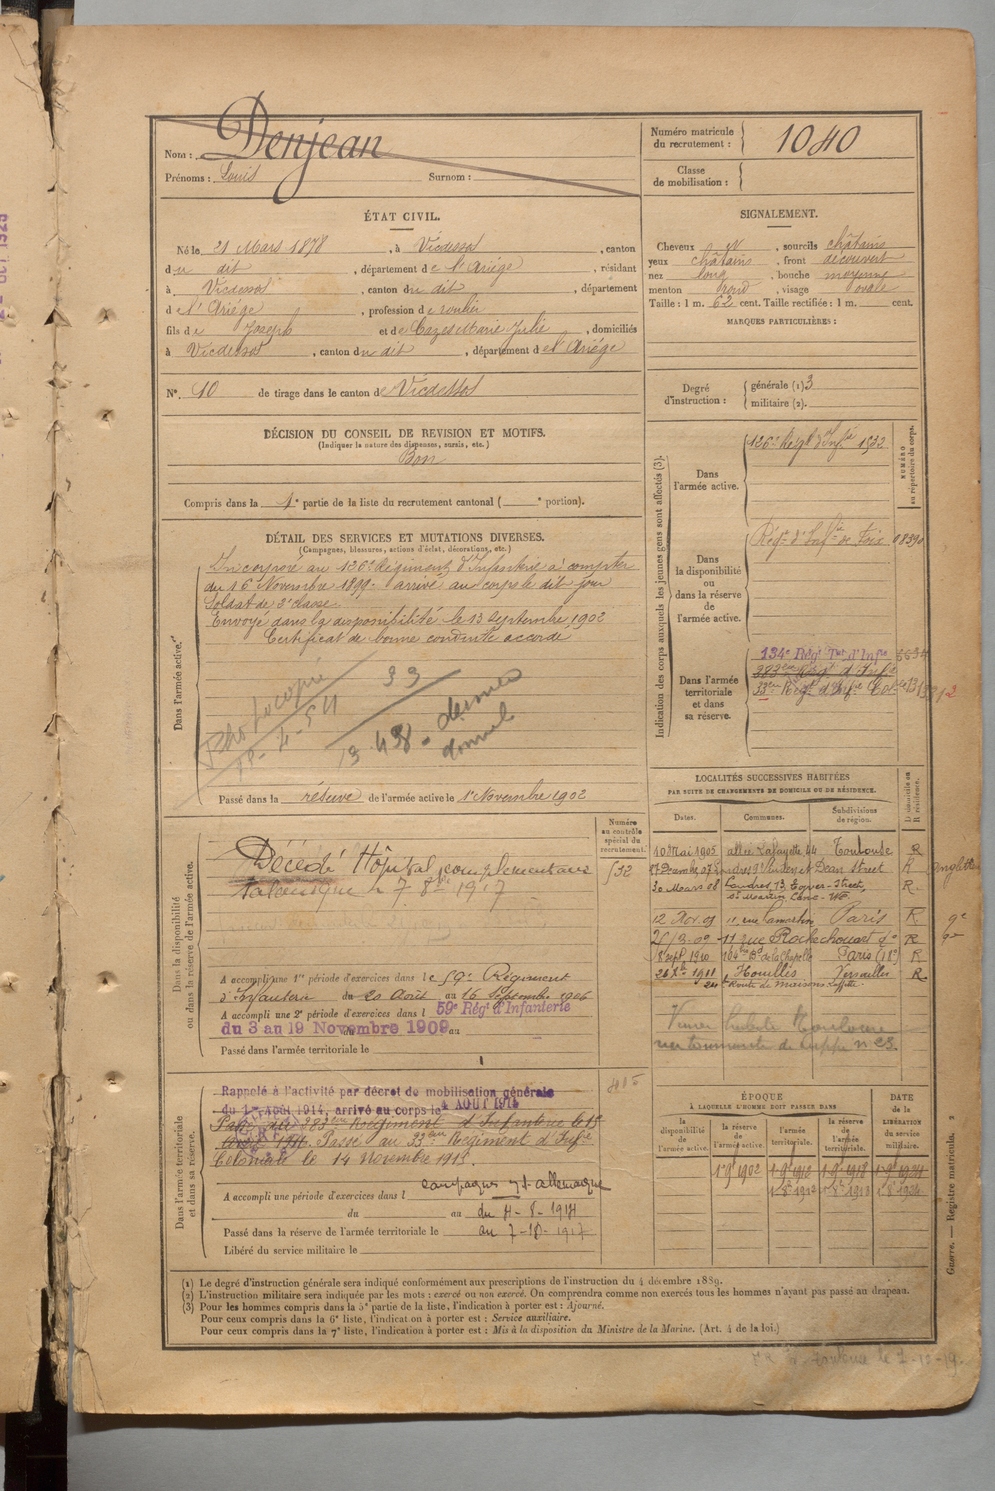 Nom : Denjean
Prénoms : Louis Surnom :
Numéro matricule du recrutement : 1040
Classe de mobilisation :
ÉTAT CIVIL.
Né le 21 Mars 1878, à Vicdessos, canton
du dit, département de l'Ariége, résidant
à Vicdessos, canton du dit, département
de l'Ariége, profession de roulier
fils de Joseph et de Cazes Marie Julie, domiciliés
à Vicdessos, canton du dit, département de l'Ariége
N°. 40 de tirage dans le canton de Vicdessos
SIGNALEMENT.
Cheveux N, sourcils châtains
yeux châtains, front découvert
nez long, bouche moyenne
menton rond, visage ovale
Taille : 1 m. 62 cent. Taille rectifiée : 1 m. cent.
MARQUES PARTICULIÈRES :
Degré d'instruction : générale (1) 3
militaire (2).
DÉCISION DU CONSEIL DE REVISION ET MOTIFS.
(Indiquer la nature des dispenses, sursis, etc.)
Bon
Compris dans la 1e partie de la liste du recrutement cantonal ( e portion).
DÉTAIL DES SERVICES ET MUTATIONS DIVERSES.
(Campagnes, blessures, actions d'éclat, décorations, etc.)
Dans l'armée active.
Incorporé au 126e Régiment d'Infanterie à compter
du 16 Novembre 1899. arrivé au corps le dit jour
Soldat de 2e classe
Envoyé dans la disponibilité le 13 Septembre 1902
Certificat de bonne conduite accordé
Photocopie
33
Passé dans la réserve de l'armée active le 1er Novembre 1902
Indication des corps auxquels les jeunes gens sont affectés (3).
NUMÉRO au répertoire du corps.
Dans l'armée active.
126e Régt d'Infie 1832
Dans la disponibilité ou dans la réserve de l'armée active.
Régt d'Infie de Foix 08390
Dans l'armée territoriale et dans sa réserve.
134e Régt Ter d'Infie
383eme Régt d'Infie
33eme Régt d'Infie Cole
LOCALITÉS SUCCESSIVES HABITÉES
PAR SUITE DE CHANGEMENTS DE DOMICILE OU DE RÉSIDENCE.
Dates. Communes. Subdivisions de région. Domicile ou résidence.
10 Mai 1905 allée Lafayette 44 Toulouse R
Dean Street R Angleterre
30 Mars 08 Londres, 13, Street, R.
St Martin
12 Nov. 08 11, rue Lamartine Paris R
11 rue Rochechouart do R
8 Sept. 1910 164 Bd de la Chapelle Paris (18e) R
1911 Houilles Versailles R
Route de Maisons Laffitte
Numéro au contrôle spécial du recrutement.
Dans la disponibilité ou dans la réserve de l'armée active.
Décédé Hôpital complémentaire
7 8bre 1917
A accompli une 1re période d'exercices dans le 59e Régiment
d'Infanterie du 20 Août au 16 Septembre 1906
A accompli une 2e période d'exercices dans l 59e Régt d'Infanterie
du 3 au 19 Novembre 1909
Passé dans l'armée territoriale le
Dans l'armée territoriale et dans sa réserve.
Rappelé à l'activité par décret de mobilisation générale
du 1er Août 1914, arrivé au corps le 4 AOUT 1914
Passé au 383eme Régiment d'Infanterie le 1er
Passé au 33eme Régiment d'Infie
Coloniale le 14 Novembre 1915.
A accompli une période d'exercices dans l campagnes
du au du 4-8-1914
Passé dans la réserve de l'armée territoriale le au 7-10-1917
Libéré du service militaire le
ÉPOQUE
À LAQUELLE L'HOMME DOIT PASSER DANS
DATE de la LIBÉRATION du service militaire.
la disponibilité de l'armée active.
la réserve de l'armée active.
l'armée territoriale.
la réserve de l'armée territoriale.
1 9bre 1902
(1) Le degré d'instruction générale sera indiqué conformément aux prescriptions de l'instruction du 4 décembre 1889.
(2) L'instruction militaire sera indiquée par les mots : exercé ou non exercé. On comprendra comme non exercés tous les hommes n'ayant pas passé au drapeau.
(3) Pour les hommes compris dans la 5e partie de la liste, l'indication à porter est : Ajourné.
Pour ceux compris dans la 6e liste, l'indication à porter est : Service auxiliaire.
Pour ceux compris dans la 7e liste, l'indication à porter est : Mis à la disposition du Ministre de la Marine. (Art. 4 de la loi.)
Guerre. — Registre matricule. 2